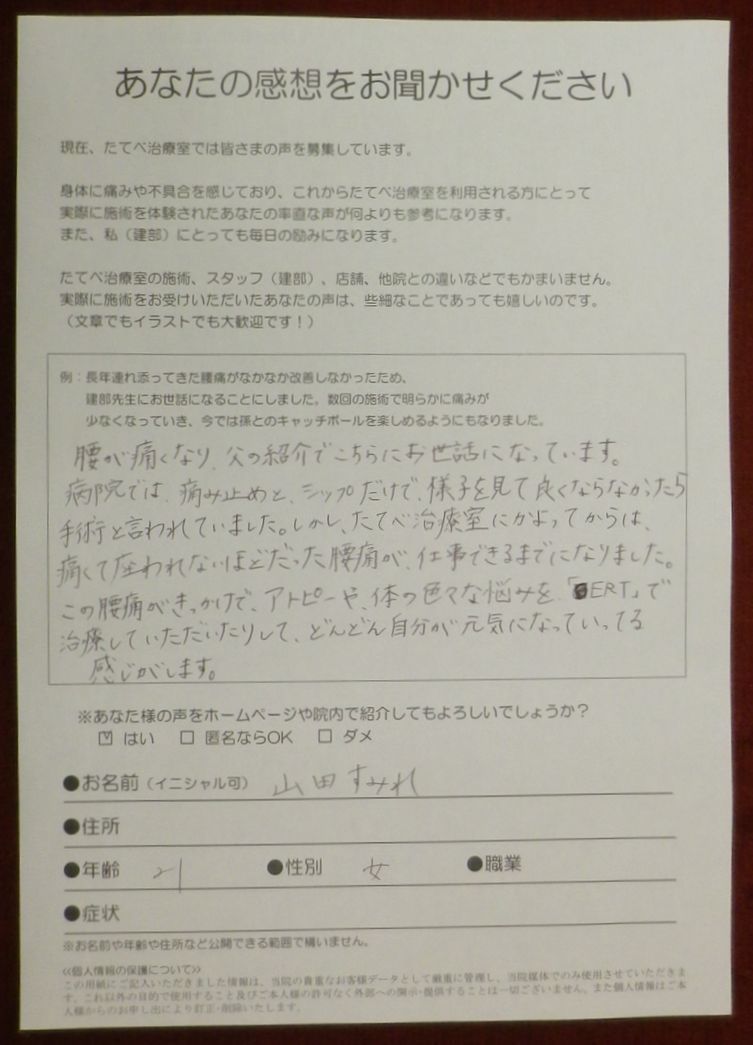 あなたの感想をお聞かせください
現在、たてべ治療室では皆さまの声を募集しています。
身体に痛みや不具合を感じており、これからたてべ治療室を利用される方にとって
実際に施術を体験されたあなたの率直な声が何よりも参考になります。
また、私（建部）にとっても毎日の励みになります。
たてべ治療室の施術、スタッフ（建部）、店舗、他院との違いなどでもかまいません。
実際に施術をお受けいただいたあなたの声は、些細なことであっても嬉しいのです。
（文章でもイラストでも大歓迎です！）
例：長年連れ添ってきた腰痛がなかなか改善しなかったため、
建部先生にお世話になることにしました。数回の施術で明らかに痛みが
少なくなっていき、今では孫とのキャッチボールを楽しめるようにもなりました。
腰が痛くなり、父の紹介でこちらにお世話になっています。
病院では、痛み止めと、シップだけで、様子を見て良くならなかったら
手術と言われていました。しかし、たてべ治療室にかよってからは、
痛くて座われないほどだった腰痛が、仕事できるまでになりました。
この腰痛がきっかけで、アトピーや、体の色々な悩みを「ERT」で
治療していただいたりして、どんどん自分が元気になっていってる
感じがします。
※あなた様の声をホームページや院内で紹介してもよろしいでしょうか？
☑ はい □ 匿名ならOK □ ダメ
●お名前（イニシャル可） 山田すみれ
●住所
●年齢 21 ●性別 女 ●職業
●症状
※お名前や年齢や住所など公開できる範囲で構いません。
<<個人情報の保護について>>
この用紙にご記入いただきました情報は、当院の貴重なお客様データとして厳重に管理し、当院媒体でのみ使用させていただきま
す。これ以外の目的で使用すること及びご本人様の許可なく外部への開示・提供することは一切ございません。また個人情報はご本
人様からのお申し出により訂正・削除いたします。